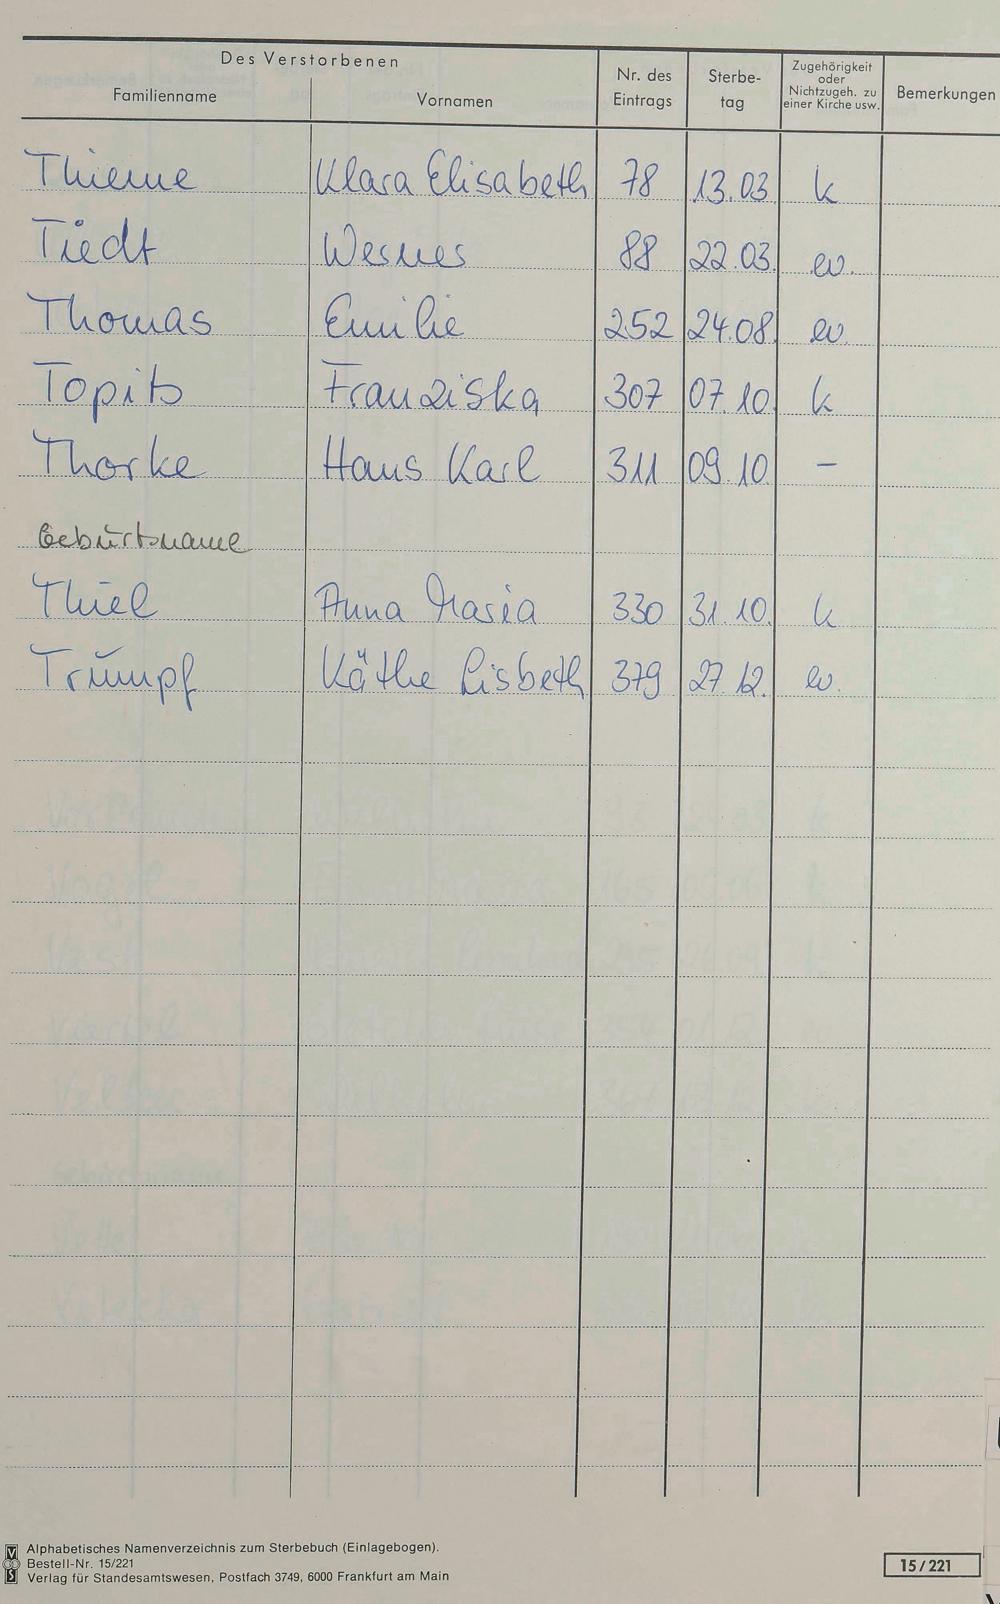 Des Verstorbenen
Familienname Vornamen Nr. des Eintrags Sterbe-tag Zugehörigkeit oder Nichtzugeh. zu einer Kirche usw. Bemerkungen
Thieme Klara Elisabeth 78 13.03 k
Tiedt Werner 88 22.03. ev.
Thomas Emilie 252 24.08. ev.
Topits Franziska 307 07.10. k
Thorke Hans Karl 311 09.10. –
Geburtsname
Thiel Anna Maria 330 31.10. k
Trumpf Käthe Lisbeth 379 27.12. ev.
Alphabetisches Namenverzeichnis zum Sterbebuch (Einlagebogen).
Bestell-Nr. 15/221
Verlag für Standesamtswesen, Postfach 3749, 6000 Frankfurt am Main
15/221